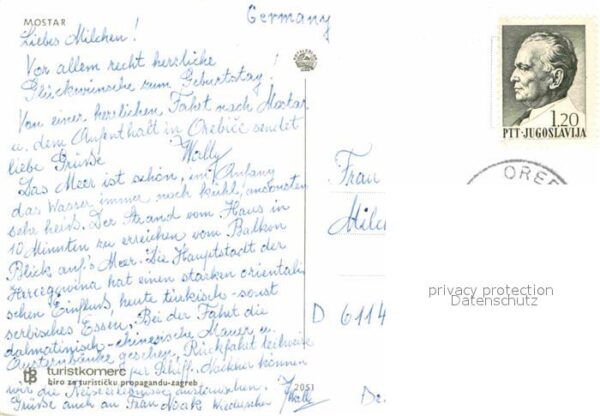 MOSTAR
Germany
Liebes Milchen!
Vor allem recht herzliche
Glückwünsche zum Geburtstag!
Von einer herrlichen Fahrt nach Mostar
u. dem Aufenthalt in Orebiče sendet
liebe Grüße Wally
Das Meer ist schön, am Anfang
das Wasser immer noch kühl, ansonsten
sehr heiß. Der Strand vom Haus in
10 Minuten zu erreichen vom Balkon
Blick auf's Meer. Die Hauptstadt der
Hercegowina hat einen starken orientali
schen Einfluß, heute türkisch - sonst
serbisches Essen. Bei der Fahrt die
dalmatinisch-chinesische Mauer u.
Austernbänke gesehen. Rückfahrt teilweise
per Schiff. können
wir die Reiseerlebnisse austauschen.
Grüße auch an Frau Noak Wally
turistkomerc
biro za turističku propagandu-zagreb
2051
1.20
PTT-JUGOSLAVIJA
OREB
Frau
Milch
D 6114
privacy protection
Datenschutz